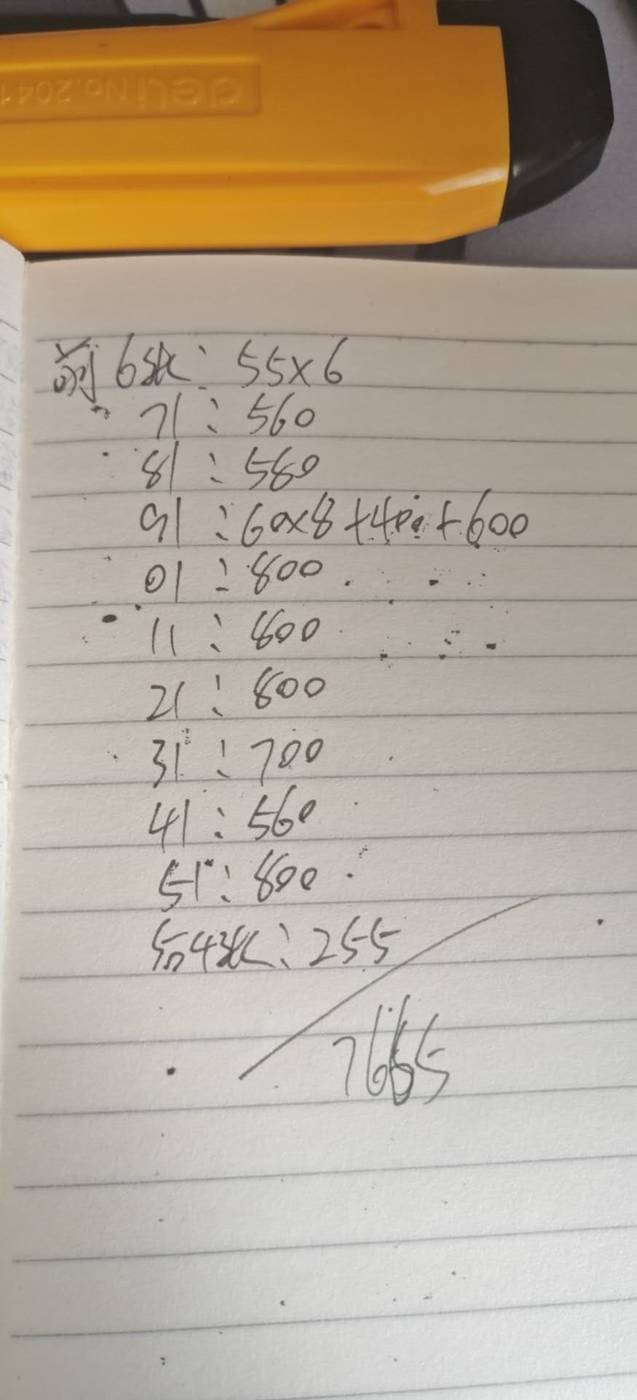 deli No.2041
前6张: 55×6
71: 560
81: 580
91: 60×8+400+600
01: 800
11: 800
21: 800
31: 700
41: 560
51: 800
后4张: 255
7665